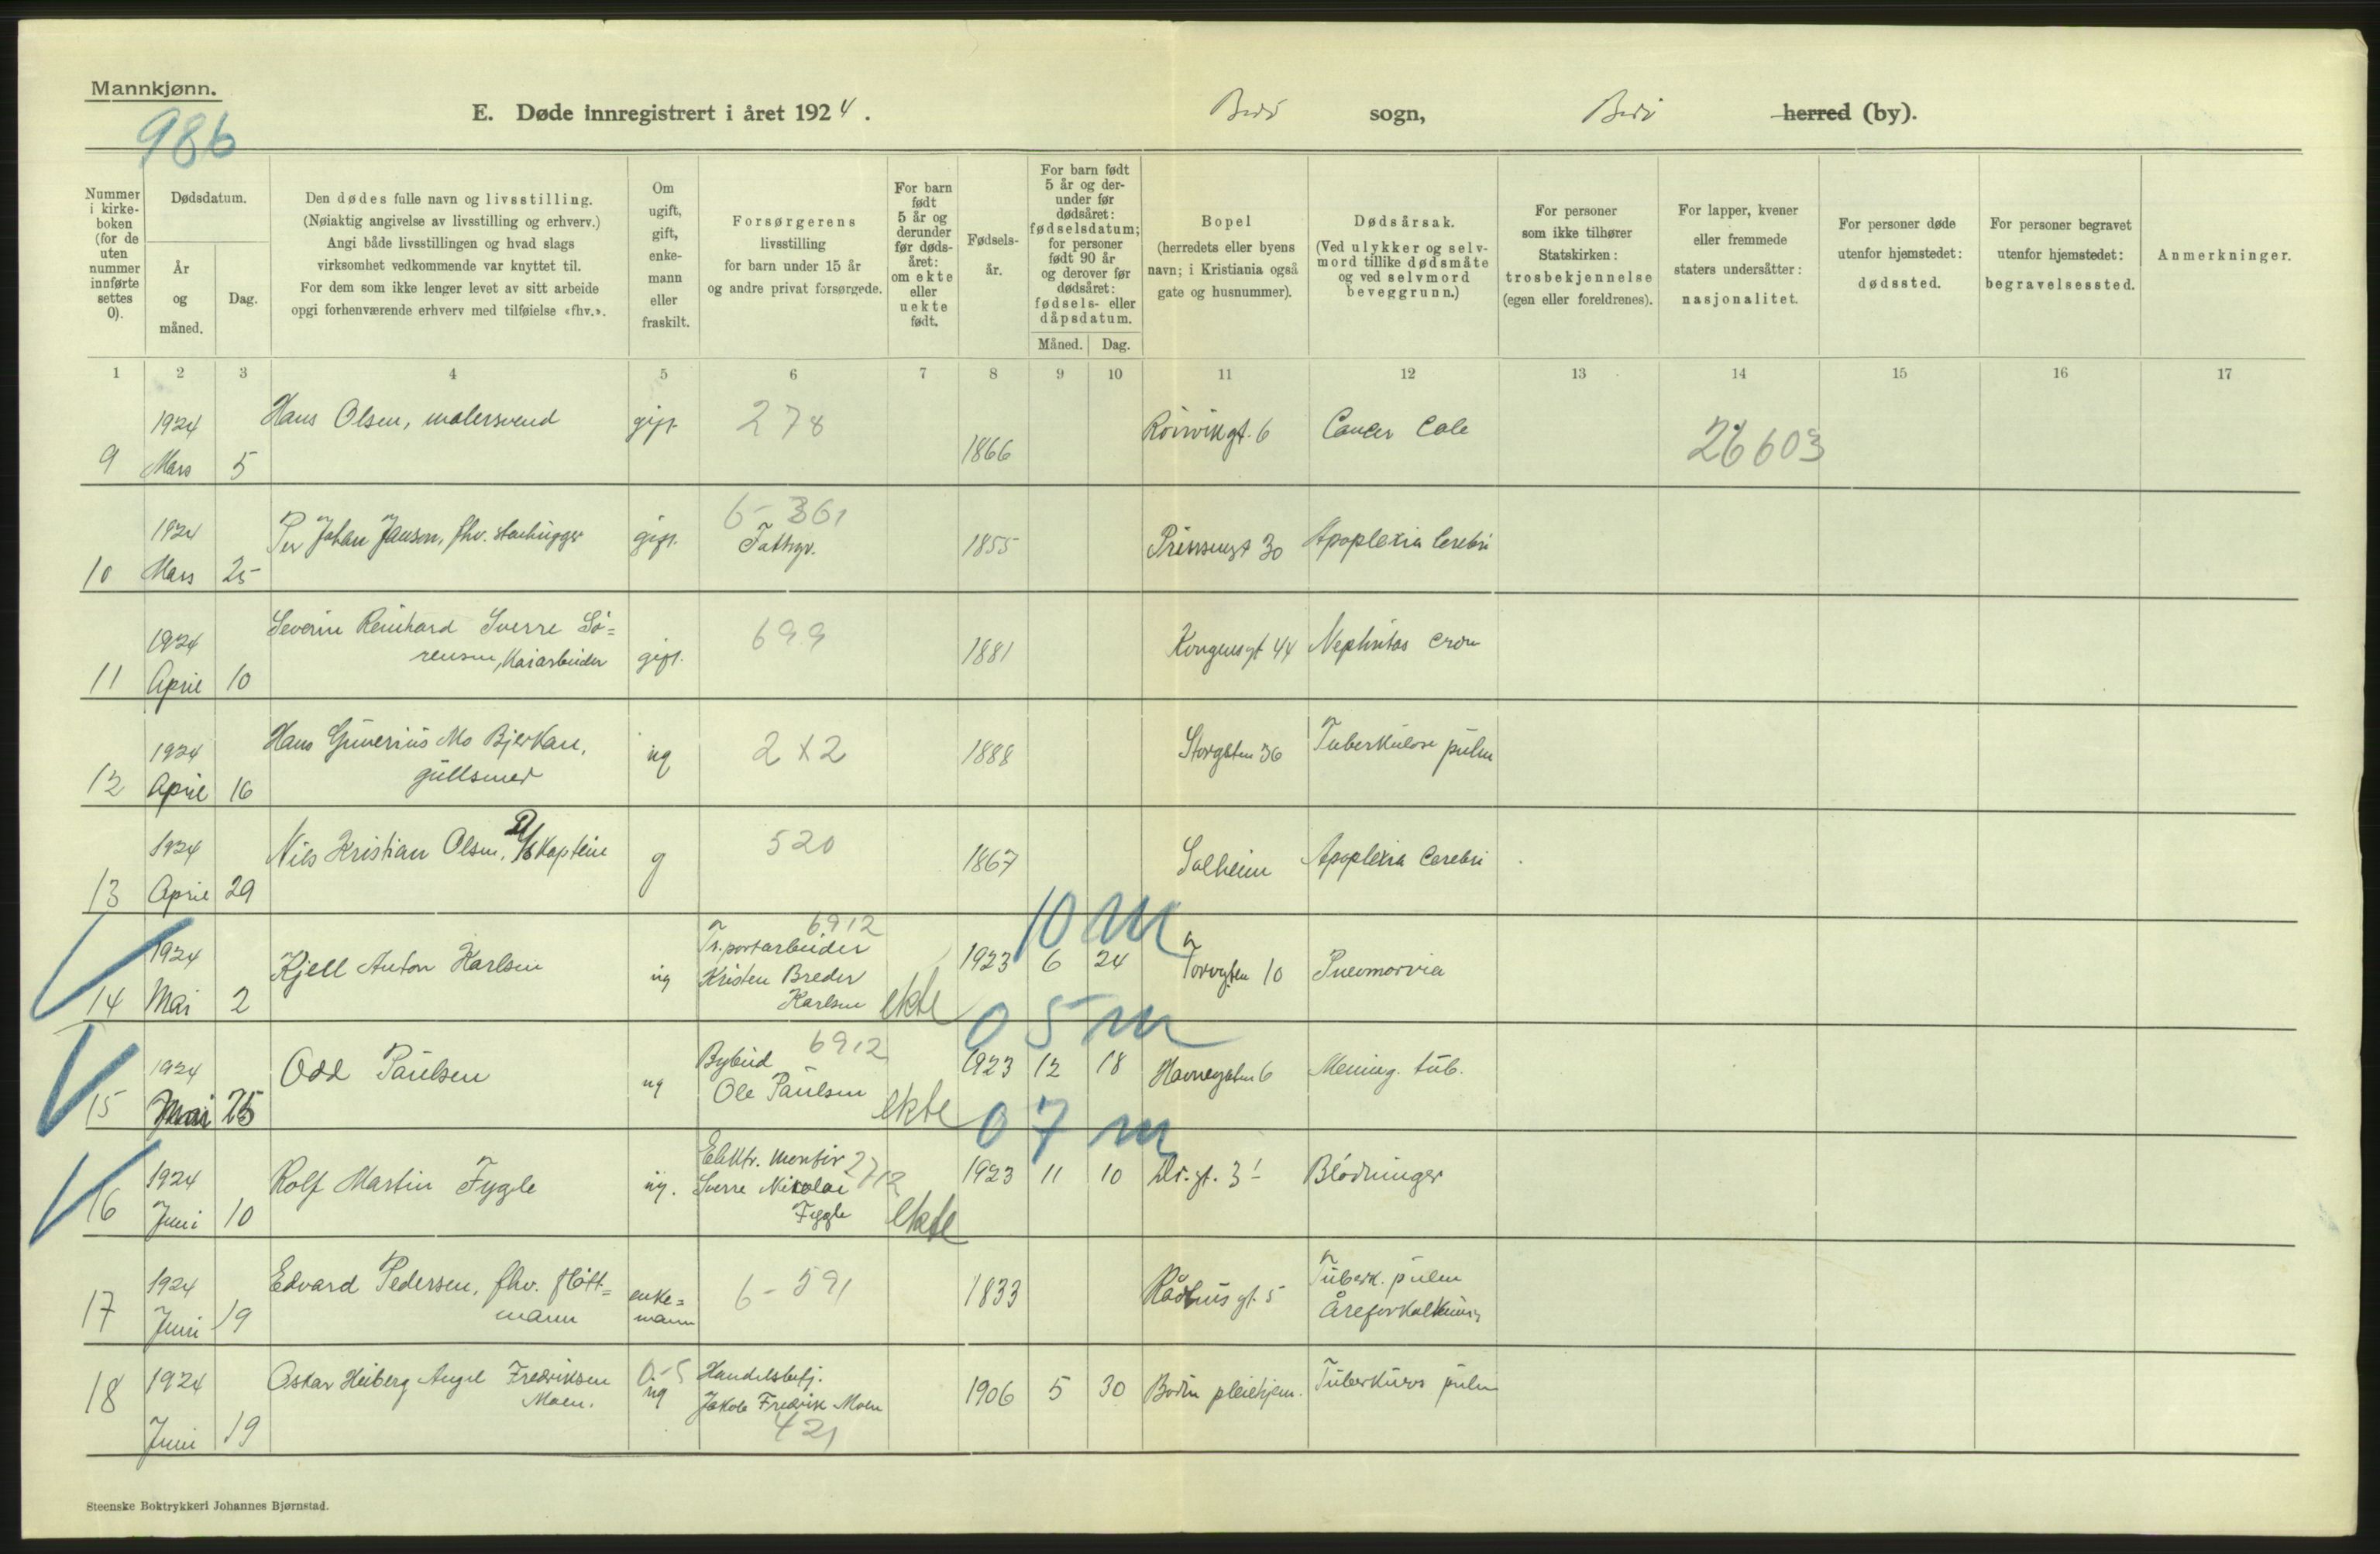 Mannkjønn.
986
E. Døde innregistrert i året 1924.
Bodø sogn, Bodø herred (by).
Nummer i kirke-boken (for de uten nummer innførte settes 0).
Dødsdatum.
År og måned.
Dag.
Den dødes fulle navn og livsstilling.
(Nøiaktig angivelse av livsstilling og erhverv.)
Angi både livsstillingen og hvad slags
virksomhet vedkommende var knyttet til.
For dem som ikke lenger levet av sitt arbeide
opgi forhenværende erhverv med tilføielse «fhv.».
Om ugift, gift, enke-mann eller fraskilt.
Forsørgerens
livsstilling
for barn under 15 år
og andre privat forsørgede.
For barn født 5 år og derunder før døds-året: om ekte eller uekte født.
Fødsels-år.
For barn født 5 år og der-under før dødsåret: fødselsdatum; for personer født 90 år og derover før dødsåret: fødsels- eller dåpsdatum.
Måned. Dag.
Bopel
(herredets eller byens
navn; i Kristiania også
gate og husnummer).
Dødsårsak.
(Ved ulykker og selv-
mord tillike dødsmåte
og ved selvmord
beveggrunn.)
For personer
som ikke tilhører
Statskirken:
trosbekjennelse
(egen eller foreldrenes).
For lapper, kvener
eller fremmede
staters undersåtter:
nasjonalitet.
For personer døde
utenfor hjemstedet:
dødssted.
For personer begravet
utenfor hjemstedet:
begravelsessted.
Anmerkninger.
1 2 3 4 5 6 7 8 9 10 11 12 13 14 15 16 17
9 1924 Mars 5 Hans Olsen, malersvend gift 278 1866 Rönvikgt. 6 Cancer Cole 26603
10 1924 Mars 25 Per Johan Janson, fhv. stenhugger gift. 6-361 Fattigv. 1855 Prinsensgt 30 Apoplexia Cerebri
11 1924 April 10 Severin Reinhard Sverre Sö=
rensen, Kaiarbeider gift. 699 1881 Kongensgt 44 Nephritas cron
12 1924 April 16 Hans Gunerius Mo Bjerkan,
gullsmed ug 2X2 1888 Storgaten 36 Tuberkulose pulm
13 1924 April 29 Nils Kristian Olsen, D/S Kaptein g 520 1867 Solheim Apoplexia Cerebri
14 1924 Mai 2 Kjell Anton Karlsen ug 6912
Tr.portarbeider
Kristen Breder
Karlsen ekte 1923 6 24 10 m Torvgten 10 Pneomornia
15 1924 Mai 25 Odd Paulsen ug Bybud 6912
Ole Paulsen ekte 1923 12 18 05 m Havnegaten 6 Mening. tub.
16 1924 Juni 10 Rolf Martin Fygle ug. Elektr. montør 2712
Sverre Nikolai
Fygle ekte 1923 11 10 07 m Dr. gt. 31 Blödninger
17 1924 Juni 19 Edvard Pedersen, fhv. fløtt=
mann enke=
mann 6-591 1833 Rådhusgt. 5 Tuberk. pulm
Åreforkalkning
18 1924 Juni 19 Oskar Heiberg Angel Fredriksen
Moen. 0-5 ug Handelsbetj.
Jakob Fredrik Moen
421 1906 5 30 Bodin pleiehjem. Tuberkulos pulm
Steenske Boktrykkeri Johannes Bjørnstad.